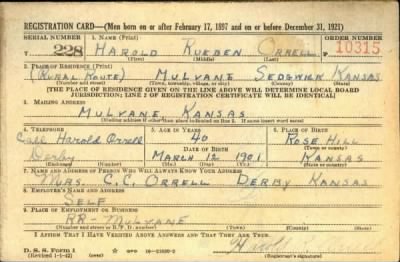 REGISTRATION CARD—(Men born on or after February 17, 1897 and on or before December 31, 1921)
SERIAL NUMBER 1. NAME (Print) ORDER NUMBER
T 228 HAROLD RUEBEN ORRELL 10315
(First) (Middle) (Last)
2. PLACE OF RESIDENCE (Print)
(RURAL ROUTE) MULVANE SEDGWICK KANSAS
(Number and street) (Town, township, village, or city) (County) (State)
[THE PLACE OF RESIDENCE GIVEN ON THE LINE ABOVE WILL DETERMINE LOCAL BOARD
JURISDICTION; LINE 2 OF REGISTRATION CERTIFICATE WILL BE IDENTICAL]
3. MAILING ADDRESS
MULVANE, KANSAS
[Mailing address if other than place indicated on line 2. If same insert word same]
4. TELEPHONE 5. AGE IN YEARS 6. PLACE OF BIRTH
Call Harold Orrell 40 ROSE HILL
Derby DATE OF BIRTH (Town or county)
MARCH 12 1901 KANSAS
(Exchange) (Number) (Mo.) (Day) (Yr.) (State or country)
7. NAME AND ADDRESS OF PERSON WHO WILL ALWAYS KNOW YOUR ADDRESS
MRS. C. C. ORRELL DERBY KANSAS
8. EMPLOYER'S NAME AND ADDRESS
SELF
9. PLACE OF EMPLOYMENT OR BUSINESS
RR- MULVANE
(Number and street or R. F. D. number) (Town) (County) (State)
I AFFIRM THAT I HAVE VERIFIED ABOVE ANSWERS AND THAT THEY ARE TRUE.
D. S. S. Form 1
(Revised 1-1-42) (over) Harold